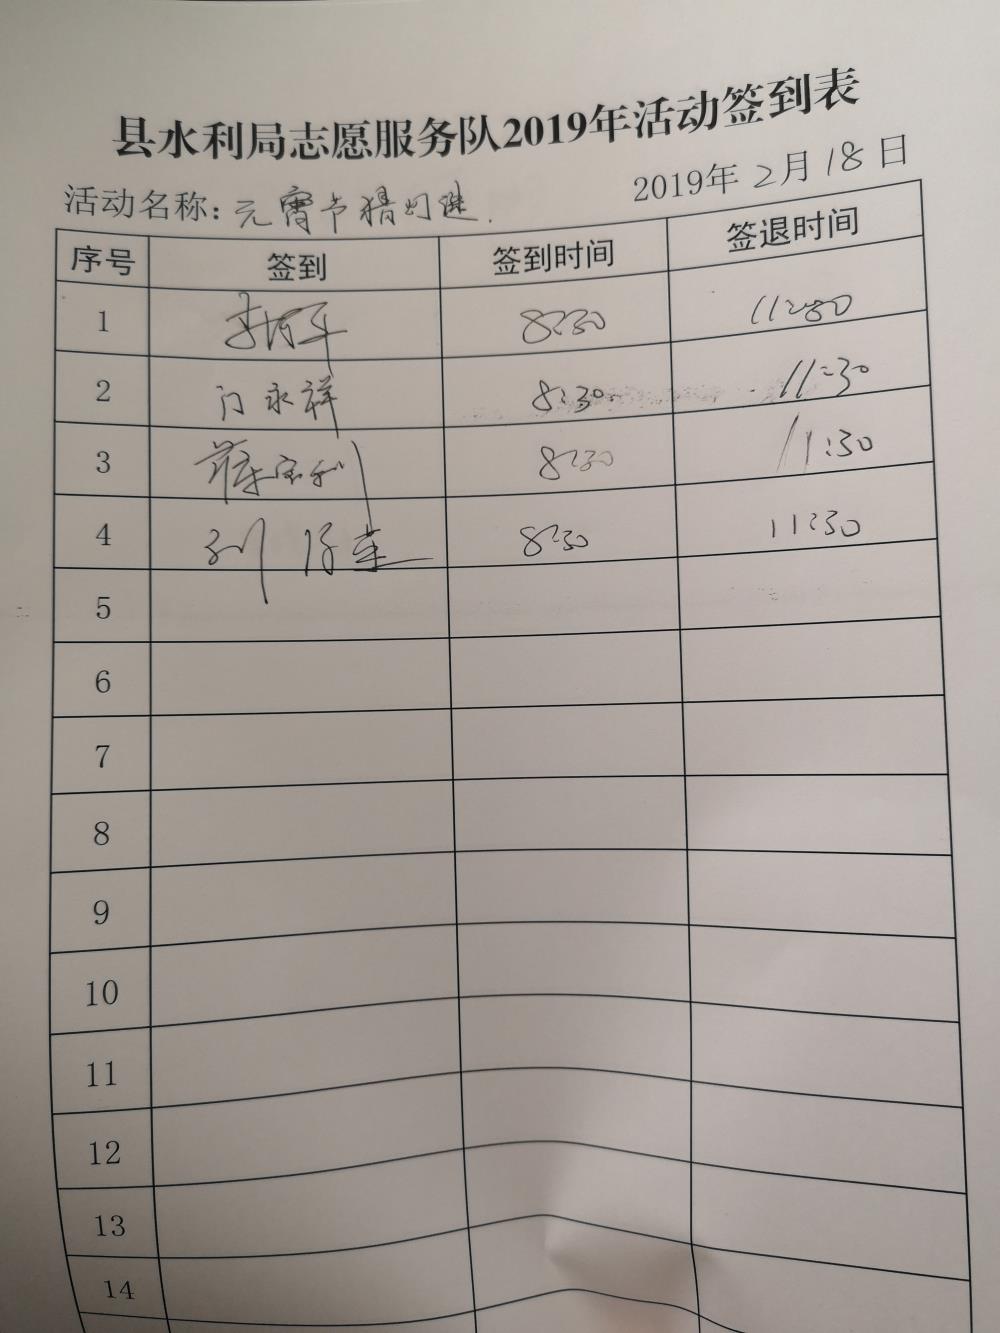 县水利局志愿服务队2019年活动签到表
活动名称：元宵节猜灯谜.
2019年2月18日
序号 签到 签到时间 签退时间
1 8:30
2 门永祥 8:30 11:30
3 8:30 11:30
4 8:30 11:30
5
6
7
8
9
10
11
12
13
14